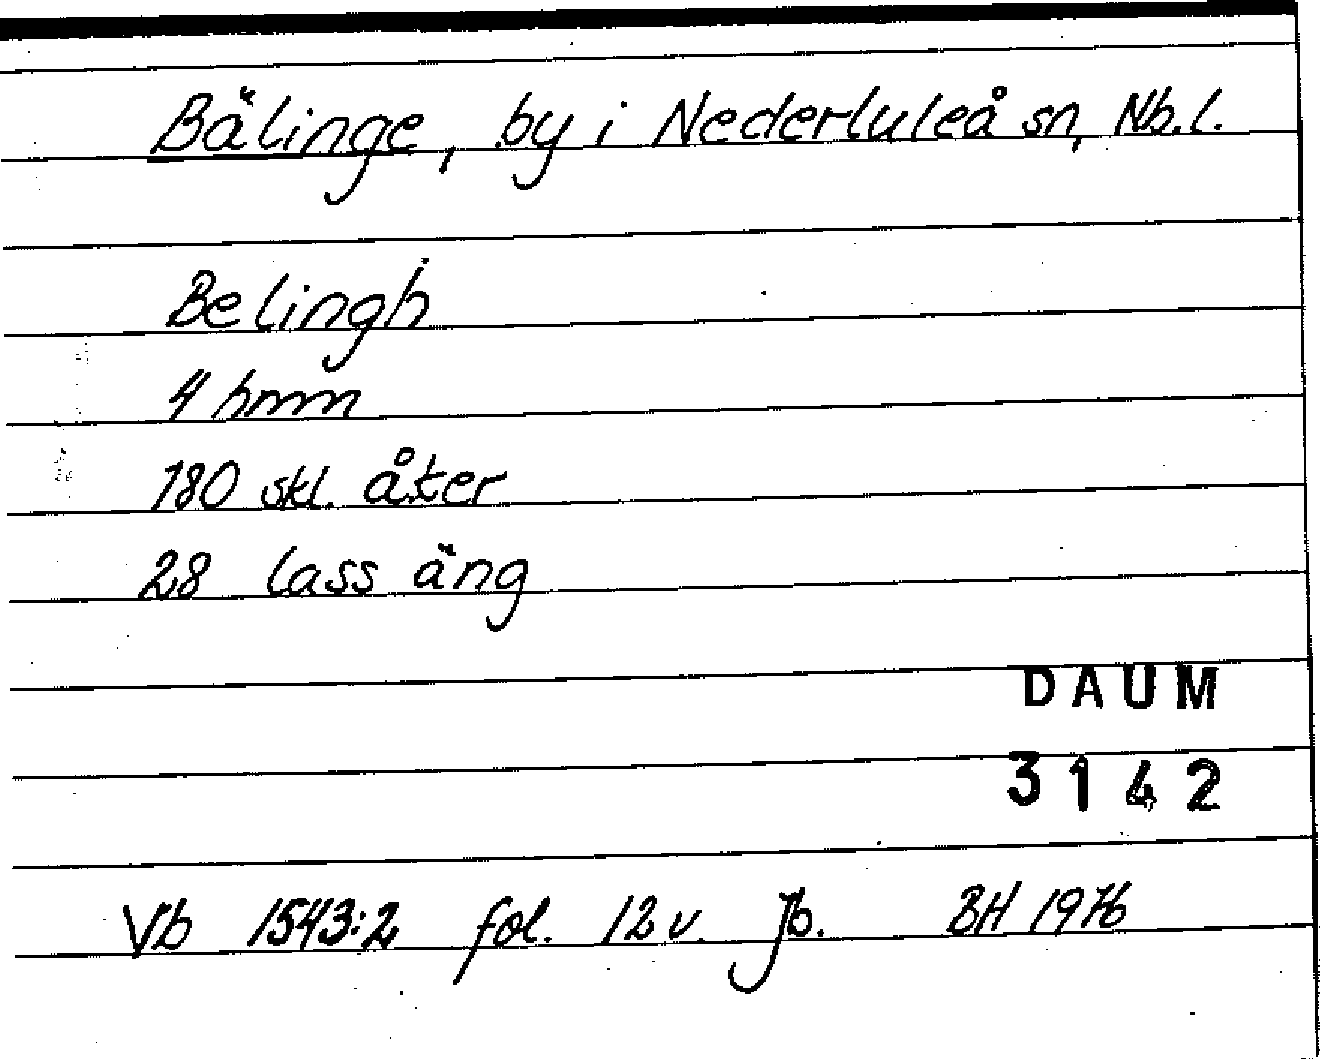 Bälinge, by i Nederluleå sn, Nb.l.
Belingh
4 hmm
180 skl. åker
28 lass äng
DAUM
3142
Vb 1543:2 fol. 12 v. Jb. BH 1976